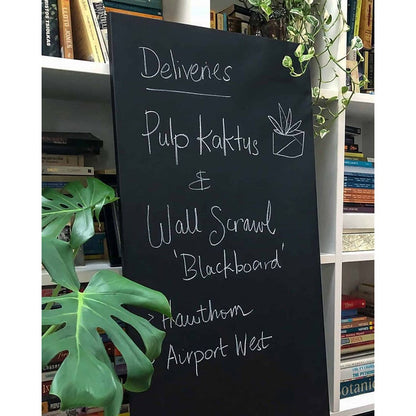 Deliveries
Pulp Kaktus
&
Wall Scrawl
'Blackboard'
> Hawthorn
Airport West